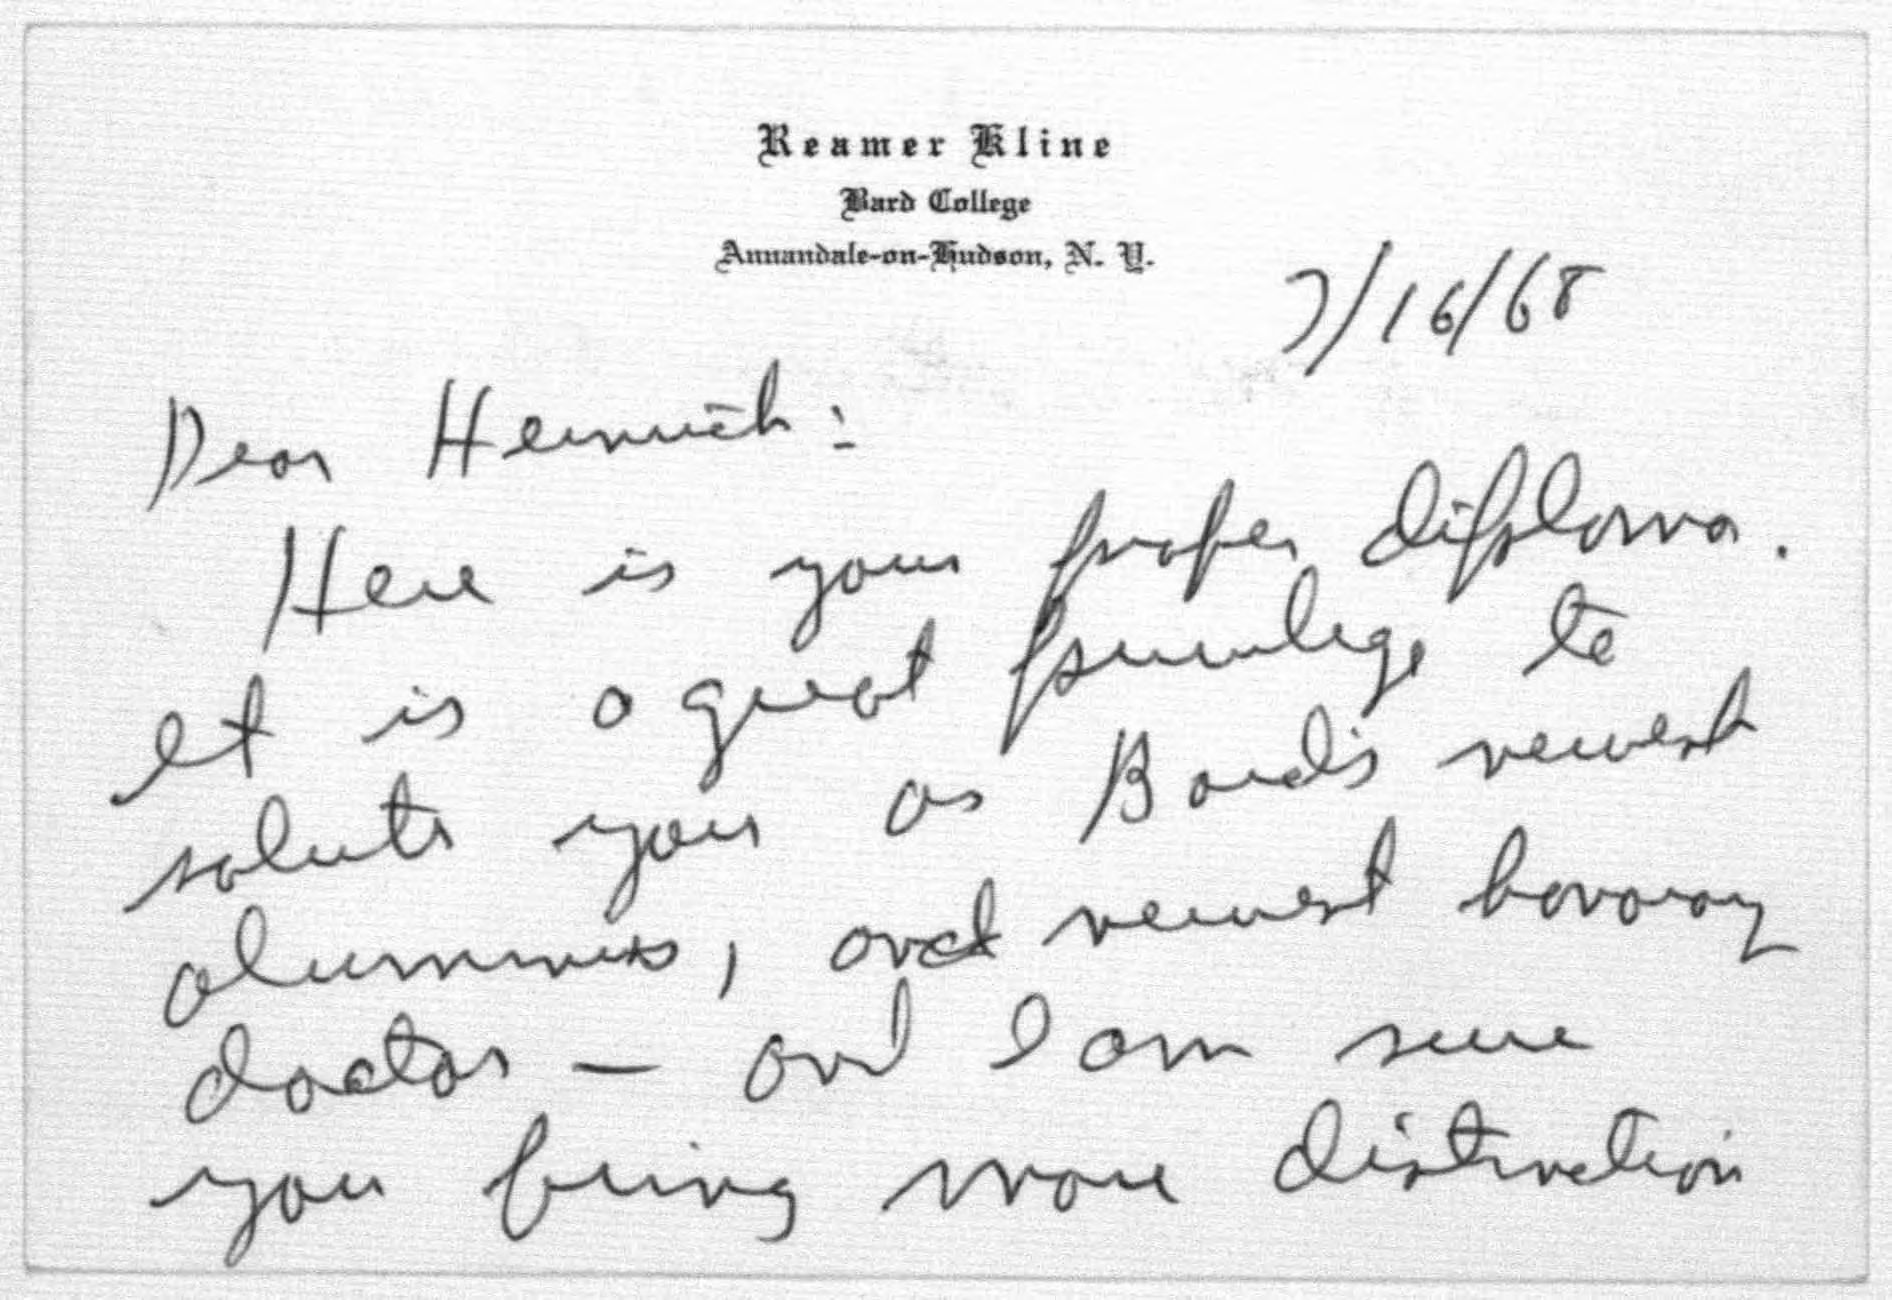 Reamer Kline
Bard College
Annandale-on-Hudson, N. Y.
7/16/68
Dear Heinrich:
Here is your proper diploma.
It is a great privilege to
salute you as Bard's newest
alumnus, and newest honorary
doctor — and I am sure
you bring more distinction